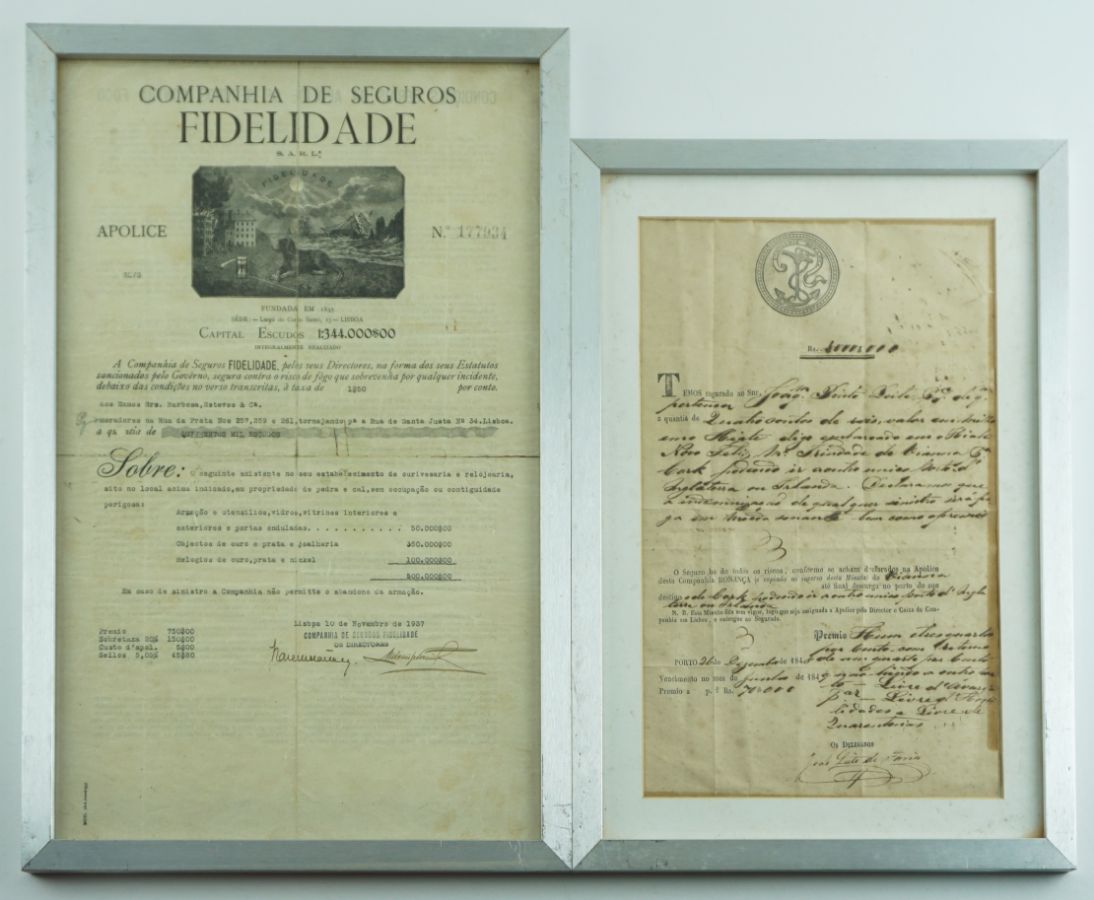 COMPANHIA DE SEGUROS
FIDELIDADE
S. A. R. L.ª
FIDELIDADE
APOLICE
N.º 177934
FUNDADA EM 1835
SÉDE: — Largo do Corpo Santo, 13 — LISBOA
CAPITAL ESCUDOS 1.344.000$00
INTEGRALMENTE REALIZADO
A Companhia de Seguros FIDELIDADE, pelos seus Directores, na forma dos seus Estatutos
sancionados pelo Govêrno, segura contra o risco de fôgo que sobrevenha por qualquer incidente,
debaixo das condições no verso transcritas, á taxa de 1$50 por conto.
aos Exmos Srs. Barbosa, Esteves & Cª.
moradores na Rua da Prata Nos 257,259 e 261,tornejando pª a Rua de Santa Justa Nº 34.Lisboa.
a quantia de QUINHENTOS MIL ESCUDOS
Sobre: O seguinte existente no seu estabelecimento de ourivesaria e relojoaria,
sito no local acima indicado,em propriedade de pedra e cal,sem ocupação ou contiguidade
perigosa:
Armação e utensilios,vidros,vitrines interiores e
exteriores e portas onduladas. . . . . . . . . . . 50.000$00
Objectos de ouro e prata e joalharia 350.000$00
Relogios de ouro,prata e nickel 100.000$00
500.000$00
Em caso de sinistro a Companhia não permitte o abandono da armação.
Premio 750$00
Sobretaxa 20% 150$00
Custo d'apol. 5$00
Sellos 5,05% 45$80
Lisboa 10 de Novembro de 1937
COMPANHIA DE SEGUROS FIDELIDADE
OS DIRECTORES
Rs. 4000$000
TEMOS segurado ao Snr. João Pinto Leite
pertencer
a quantia de Quatro contos de reis, valor
em o Hiate digo embarcado em o Hiate
Novo Feliz, Trindade de Vianna
Cork podendo ir a outro unico porto d'
Inglaterra ou Irlanda. Declaramos que
a indemnização de qualquer sinistro será pa
ga em moeda sonante bem como o premio
O Seguro he de todos os riscos, conforme se acham declarados na Apolice
desta Companhia BONANÇA e espende ao seguro desta Minuta de Vianna
até final descarga no porto do seu
destino de Cork podendo ir a outro unico porto d'Ingla
terra ou Irlanda
N. B. Esta Minuta fica sem vigor, logo que seja assignada a Apolice pela Director e Caixa da Com-
panhia em Lisboa, e entregue ao Segurado.
Premio Hum e tres quartos
por Cento com retorno
de um quarto por Cento
PORTO 26 de Dezembro de 184
Vencimento no mez de Junho de 184
Premio a p. % Rs. 70$000
e não sendo a outro por
to — Livre d'Avaria
par — Livre d'
lidades e Livre de
Quarentenas
OS DELEGADOS
João Leite de Faria